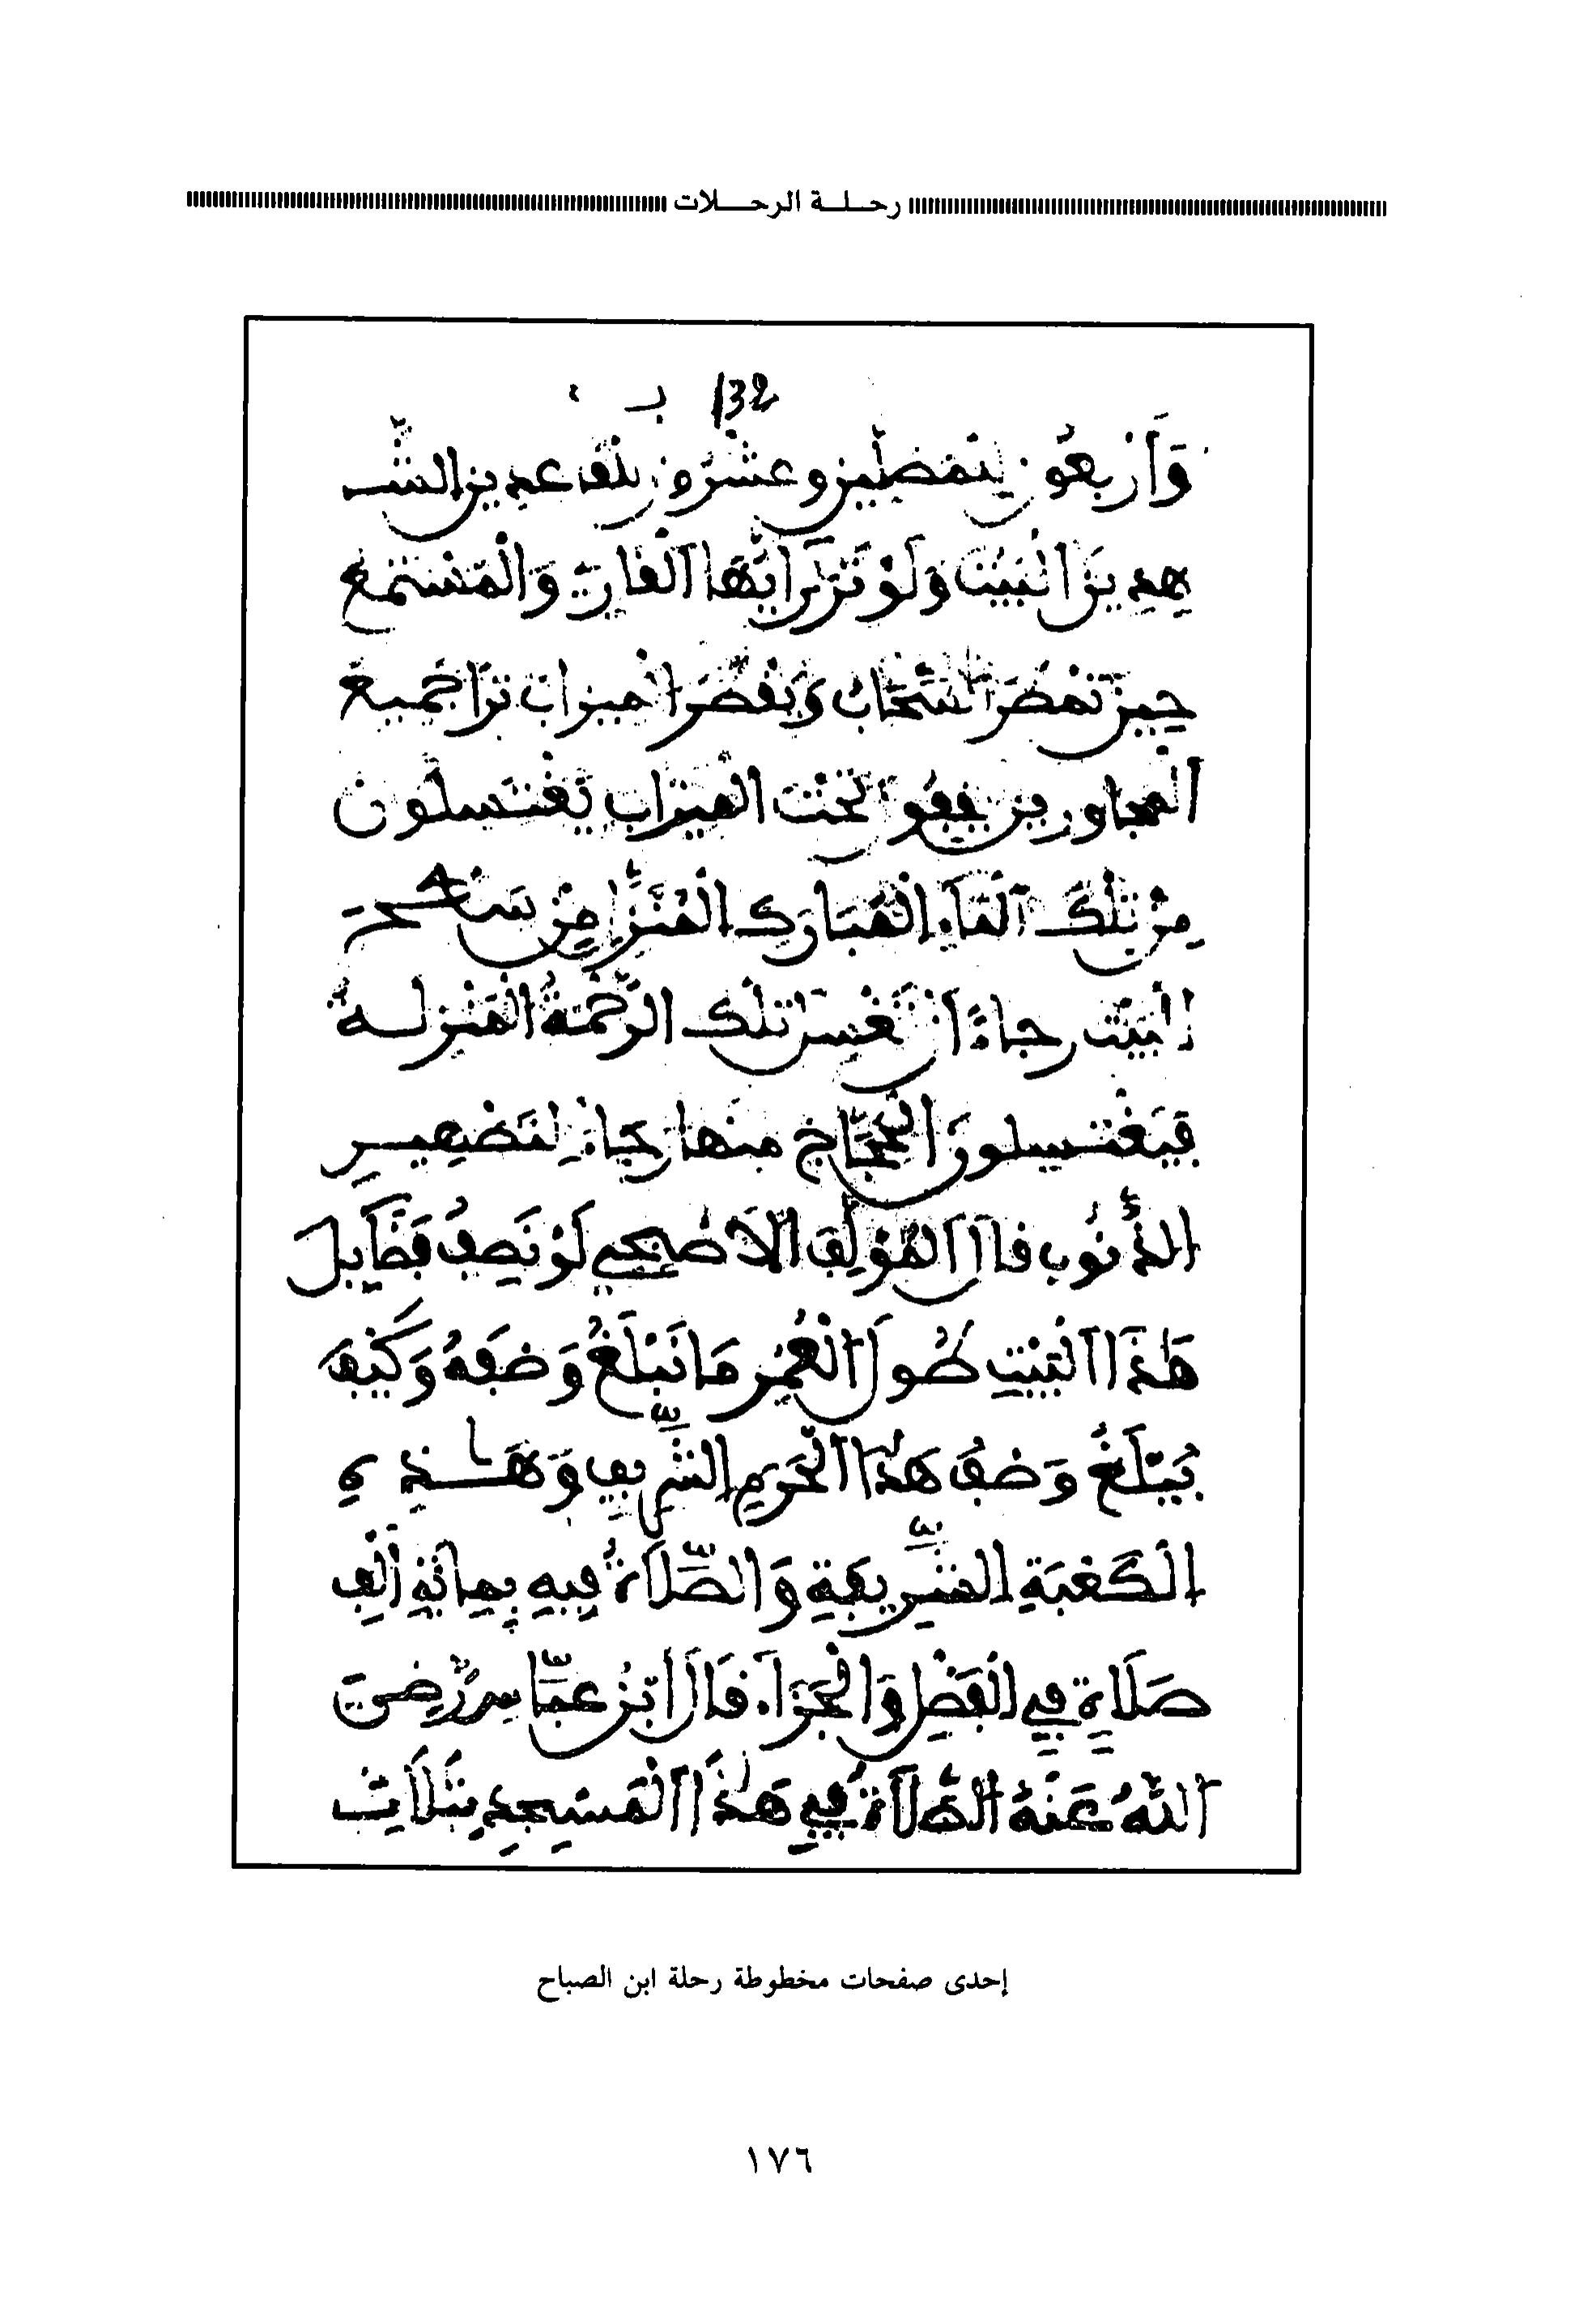 رحلة الرحلات
132 ب
وَأَرْبَعُونَ وعشرون
الْبَيْت وَلَوْ تَرَى أَيُّهَا الْقَارِئ وَالْمُسْتَمِع
حِينَ تَمْطُرُ السَّحَابُ وَيَقْطُرَ الْمِيزَاب تَرَا جَمِيعَ
الْمجاورين يقفون تَحْتَ الْمِيزَابِ يَغْتَسِلُونَ
مِنْ تِلْكَ الْمَاءِ الْمُبَارَكِ الْمُنَزَّلِ مِنْ سَطْحِ
الْبَيْت رجاءً أَنْ تلك الرَّحْمَةُ الْمُنْزلة
فَيَغْتَسِلُونَ الْحُجَّاج مِنْهَا رجاء لتطهير
الذُّنُوبِ قَالَ الْمُؤَلِّفُ الْأَصْبَحِي لَوْ نَصِفُ فَضَايِلَ
هَٰذَا الْبَيْتِ طُولَ الْعُمُرِ مَا نَبْلُغُ وَصْفَهُ وَكَيْفَ
يُبْلَغُ وَصْفُ هَٰذَا الْحَرَمِ الشَّرِيفِ وَهَٰذِهِ
الْكَعْبَةِ الشَّرِيفَةِ وَالصَّلَاةُ فِيهِ بِمِائَةِ أَلْفِ
صَلَاةٍ فِي الْفَضْلِ وَالْجَزَاءِ قَالَ ابْنُ عَبَّاسٍ رَضِيَ
اللَّهُ عَنْهُ الصَّلَاةُ فِي هَٰذَا الْمَسْجِدِ بِثَلَاثِ
إحدى صفحات مخطوطة رحلة ابن الصباح
١٧٦